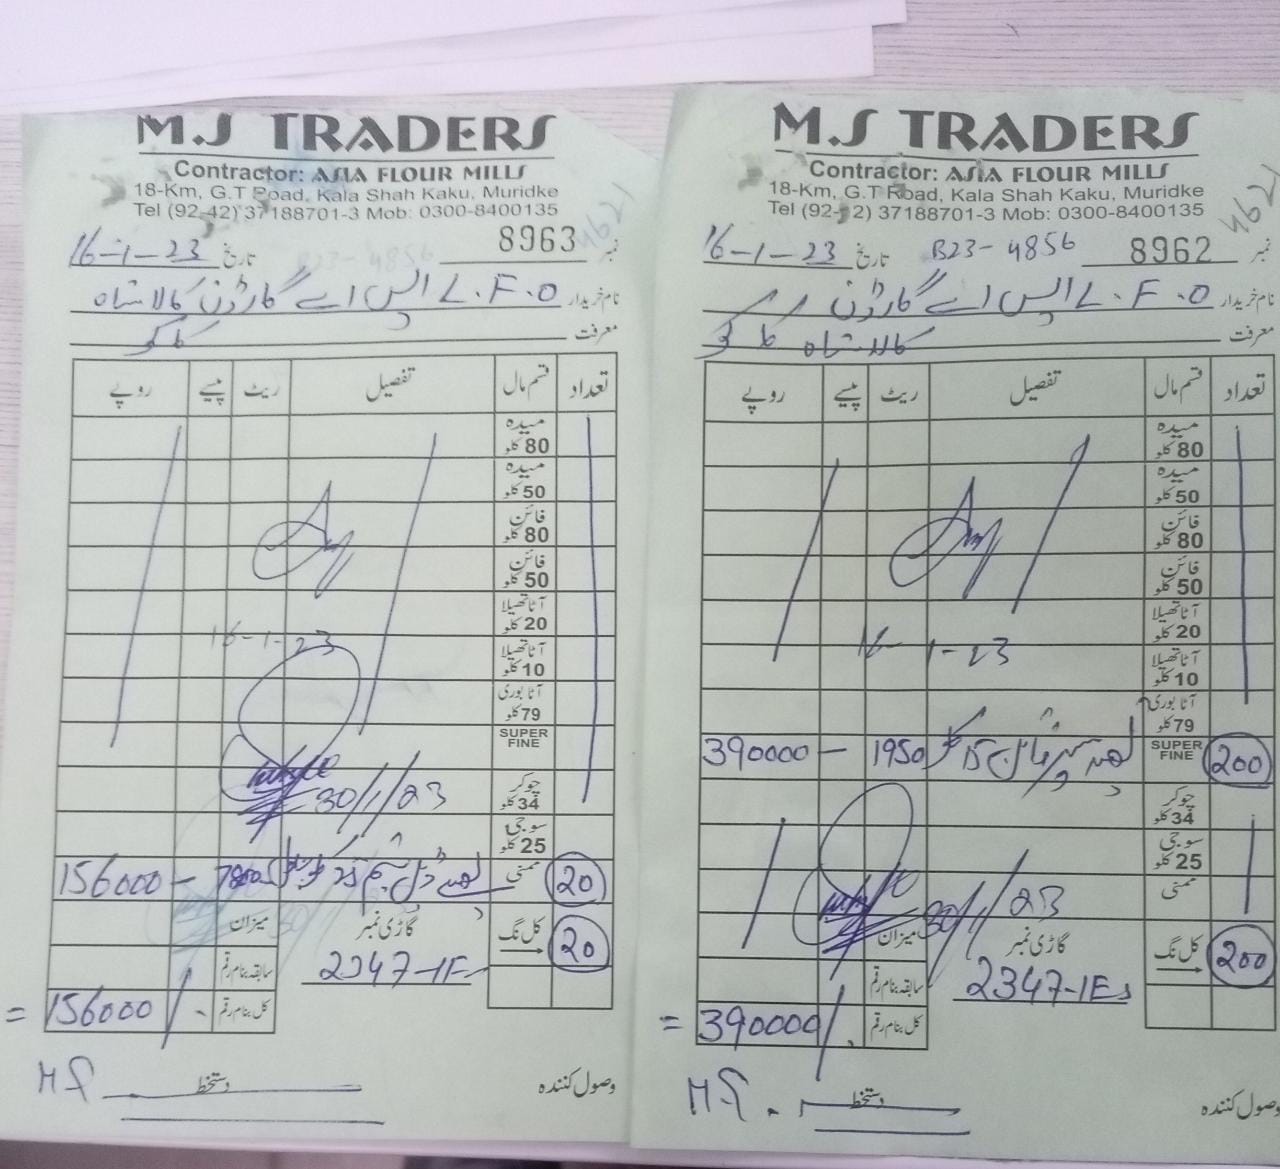 M.S TRADERS
Contractor: ASIA FLOUR MILLS
18-Km, G.T Road, Kala Shah Kaku, Muridke
Tel (92-42) 37188701-3 Mob: 0300-8400135
نمبر 8963 تاریخ 16-1-23
4621
B23-4856
نام خریدار L.F.O ایس اے گارڈن کالا شاہ
معرفت کاکو
تعداد قسم مال تفصیل ریٹ پیسے روپے
میدہ 80 کلو
میدہ 50 کلو
فائن 80 کلو
فائن 50 کلو
آٹا تھیلا 20 کلو
آٹا تھیلا 10 کلو
16-1-23
آٹا بوری 79 کلو
SUPER FINE
چوکر 34 کلو
30/1/23
سوجی 25 کلو
20 ممنی 7800 156000 -
کل نگ 20 گاڑی نمبر میزان
2347-1E
سابقہ بنام رقم
کل بنام رقم = 156000/.
وصول کنندہ دستخط
M.S TRADERS
Contractor: ASIA FLOUR MILLS
18-Km, G.T Road, Kala Shah Kaku, Muridke
Tel (92-42) 37188701-3 Mob: 0300-8400135
4621
نمبر 8962 B23-4856 تاریخ 16-1-23
نام خریدار L.F.O ایس اے گارڈن
معرفت کالا شاہ کاکو
تعداد قسم مال تفصیل ریٹ پیسے روپے
میدہ 80 کلو
میدہ 50 کلو
فائن 80 کلو
فائن 50 کلو
آٹا تھیلا 20 کلو
16-1-23
آٹا تھیلا 10 کلو
آٹا بوری 79 کلو
200 SUPER FINE سپر فائن 15 کلو 1950 390000 -
چوکر 34 کلو
سوجی 25 کلو
ممنی
30/1/23
کل نگ 200 گاڑی نمبر میزان
2347-1E
سابقہ بنام رقم
کل بنام رقم = 390000/.
وصول کنندہ دستخط